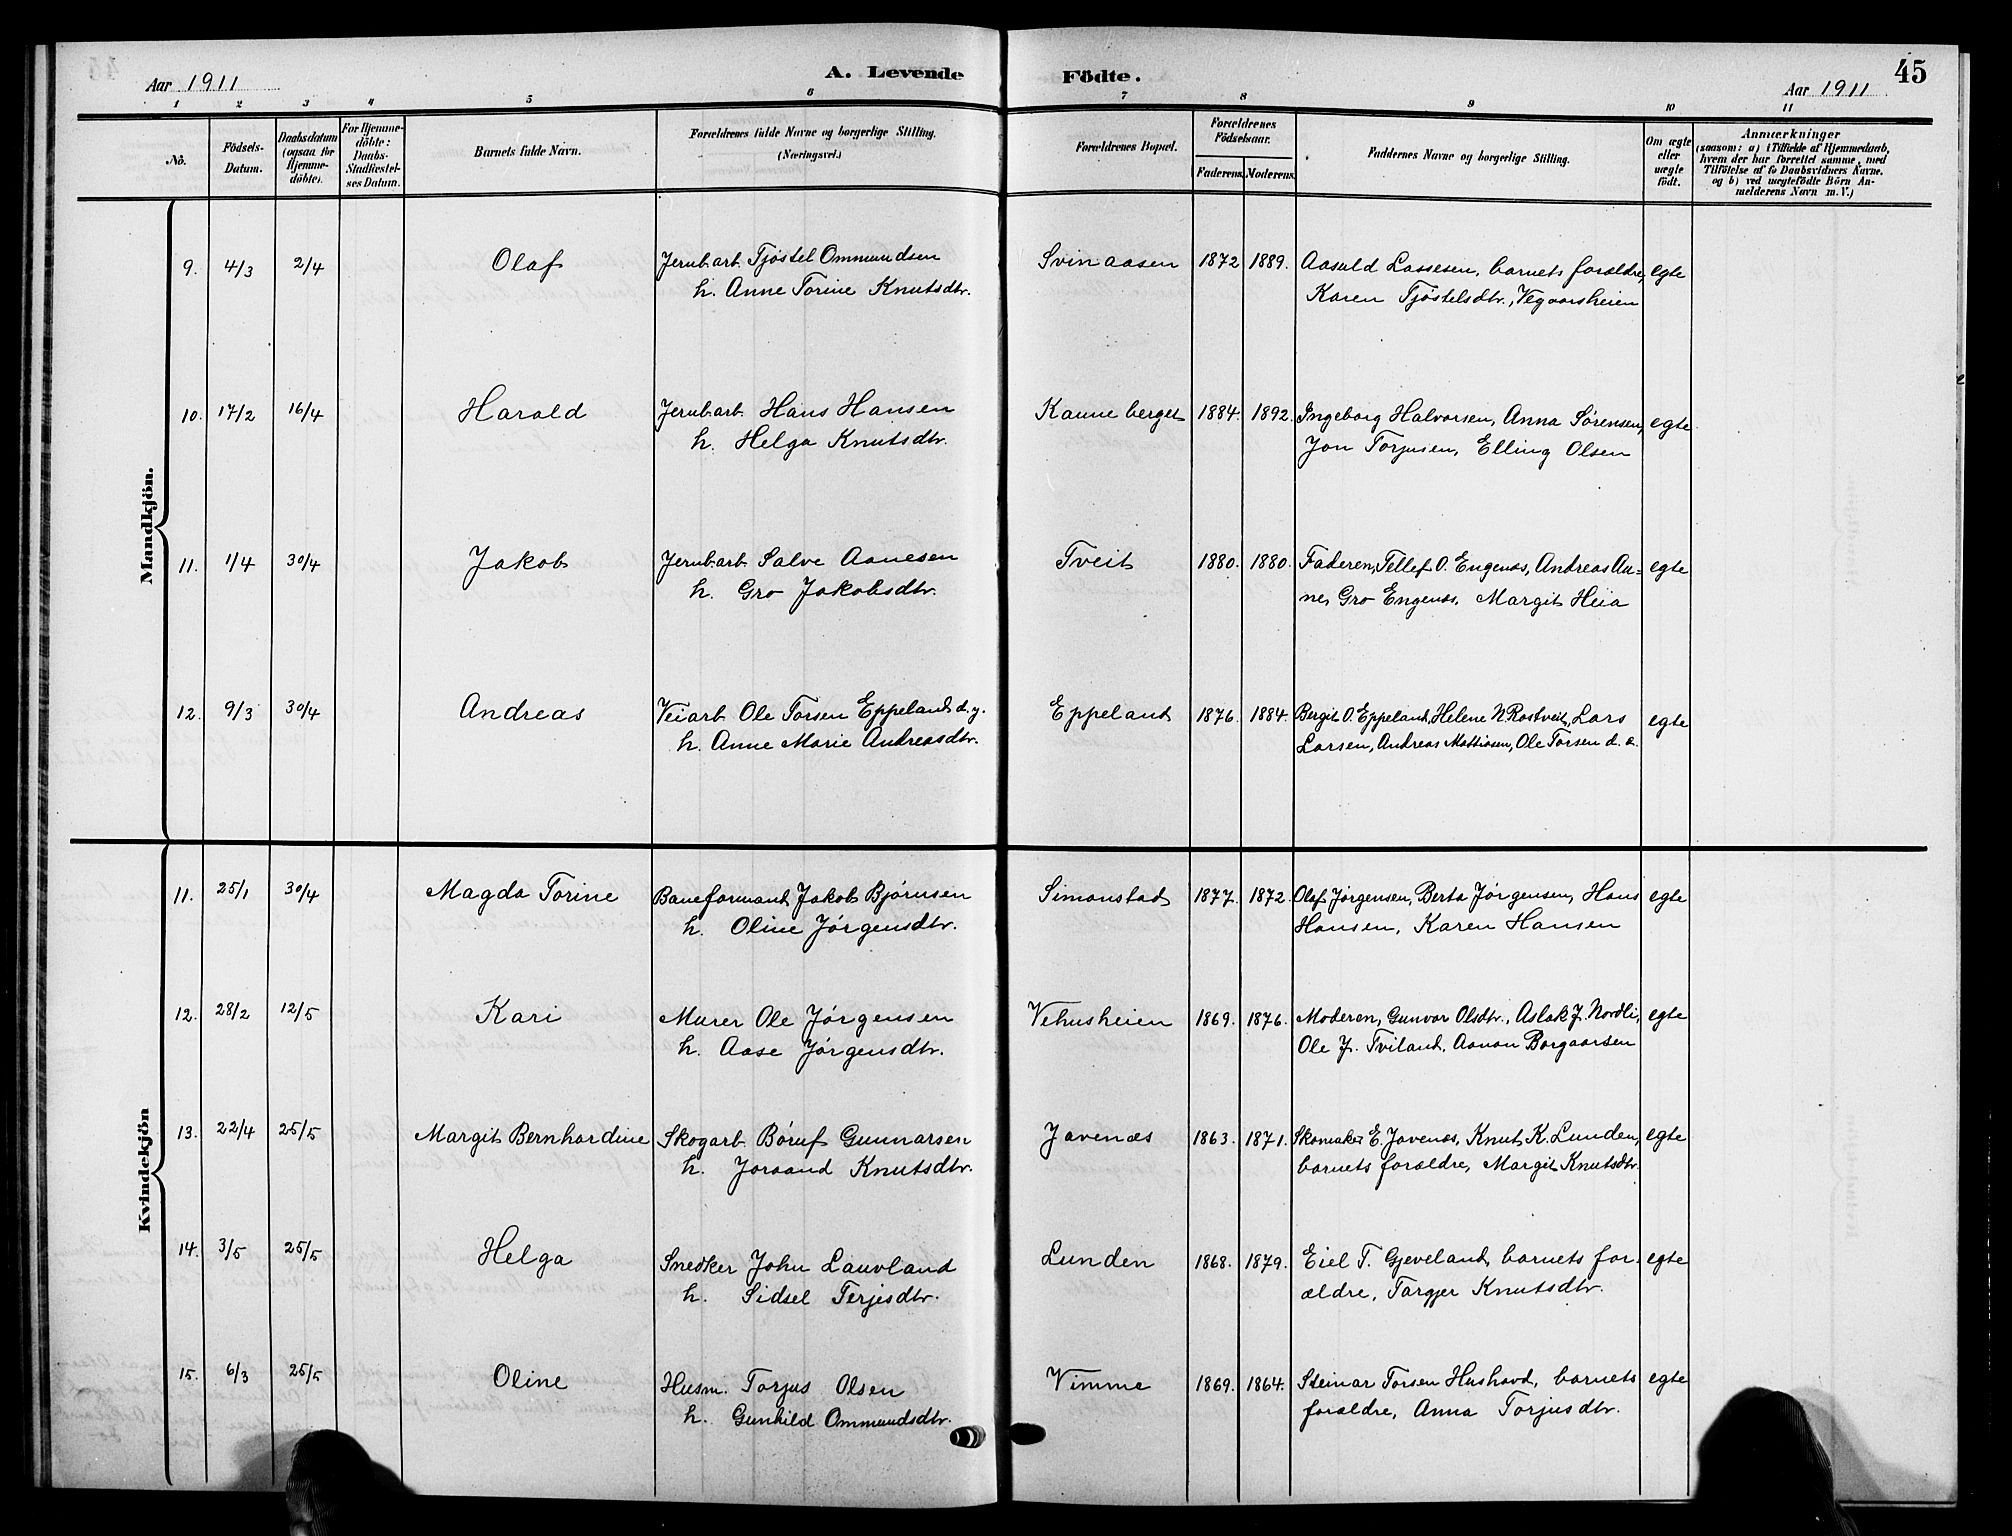 Aar 1911
A. Levende Födte.
Aar 1911
45
1 2 3 4 5 6 7 8 9 10 11
No.
Födsels-Datum.
Daabsdatum (ogsaa for Hjemme-döbte).
For Hjemme-döbte: Daabs-Stadfæstel-ses Datum.
Barnets fulde Navn.
Forældrenes fulde Navne og borgerlige Stilling. (Næringsvei.)
Forældrenes Bopæl.
Forældrenes Födselsaar.
Faderens. Moderens.
Faddernes Navne og borgerlige Stilling.
Om ægte eller uægte födt.
Anmærkninger
(saasom: a) i Tilfælde af Hjemmedaab,
hvem der har forrettet samme, med
Tilföielse af to Daabsvidners Navne.
og b) ved uægtefödte Börn An-
melderens Navn m. V.)
Mandkjön.
9. 4/3 2/4 Olaf Jernb.arb. Tjøstel Ommundsen Svinaasen 1872 1889. Aasuld Lassesen, barnets forældre, egte
h. Anne Torine Knutsdtr. Karen Tjøstelsdtr., Vegaarsheien
10. 17/2 16/4 Harald Jernb.arb. Hans Hansen Kanneberget 1884. 1892. Ingeborg Halvorsen, Anna Sørensen, egte
h. Helga Knutsdtr. Jon Torjusen, Elling Olsen
11. 1/4 30/4 Jakob Jernb.arb. Salve Aanesen Tveit 1880. 1880. Faderen, Tellef O. Engenæs, Andreas Aa= egte
h. Gro Jakobsdtr. nes, Gro Engenæs, Margit Heia
12. 9/3 30/4 Andreas Veiarb. Ole Torsen Eppeland d.y. Eppeland 1876. 1884. Bergit O. Eppeland, Helene N. Rostveit, Lars egte
h. Anne Marie Andreasdtr. Larsen, Andreas Mattiasen, Ole Torsen d. æ.
Kvindekjön
11. 25/1 30/4 Magda Torine Baneformand Jakob Bjørnsen Simonstad 1877. 1872. Olaf Jørgensen, Berta Jørgensen, Hans egte
h. Oline Jørgensdtr. Hansen, Karen Hansen
12. 28/2 12/5 Kari Murer Ole Jørgensen Vehusheien 1869. 1876. Moderen, Gunvor Olsdtr., Aslak J. Nordli, egte
h. Aase Jørgensdtr. Ole J. Tviland, Aanon Borgaarsen
13. 22/4 25/5 Margit Bernhardine Skogarb. Børuf Gunnarsen Jovenæs 1863. 1871. Skomaker E. Jovenæs, Knut K. Lunden, egte
h. Joraand Knutsdtr. barnets forældre, Margit Knutsdtr.
14. 3/5 25/5 Helga Snedker John Lauvland Lunden 1868. 1879. Eiel T. Gjeveland, barnets for- egte
h. Sidsel Terjesdtr. ældre, Targjer Knutsdtr.
15. 6/3 25/5 Oline Husm. Torjus Olsen Vimme 1869. 1864. Steinar Torsen Hushovd, barnets egte
h. Gunhild Ommundsdtr. forældre, Anna Torjusdtr.